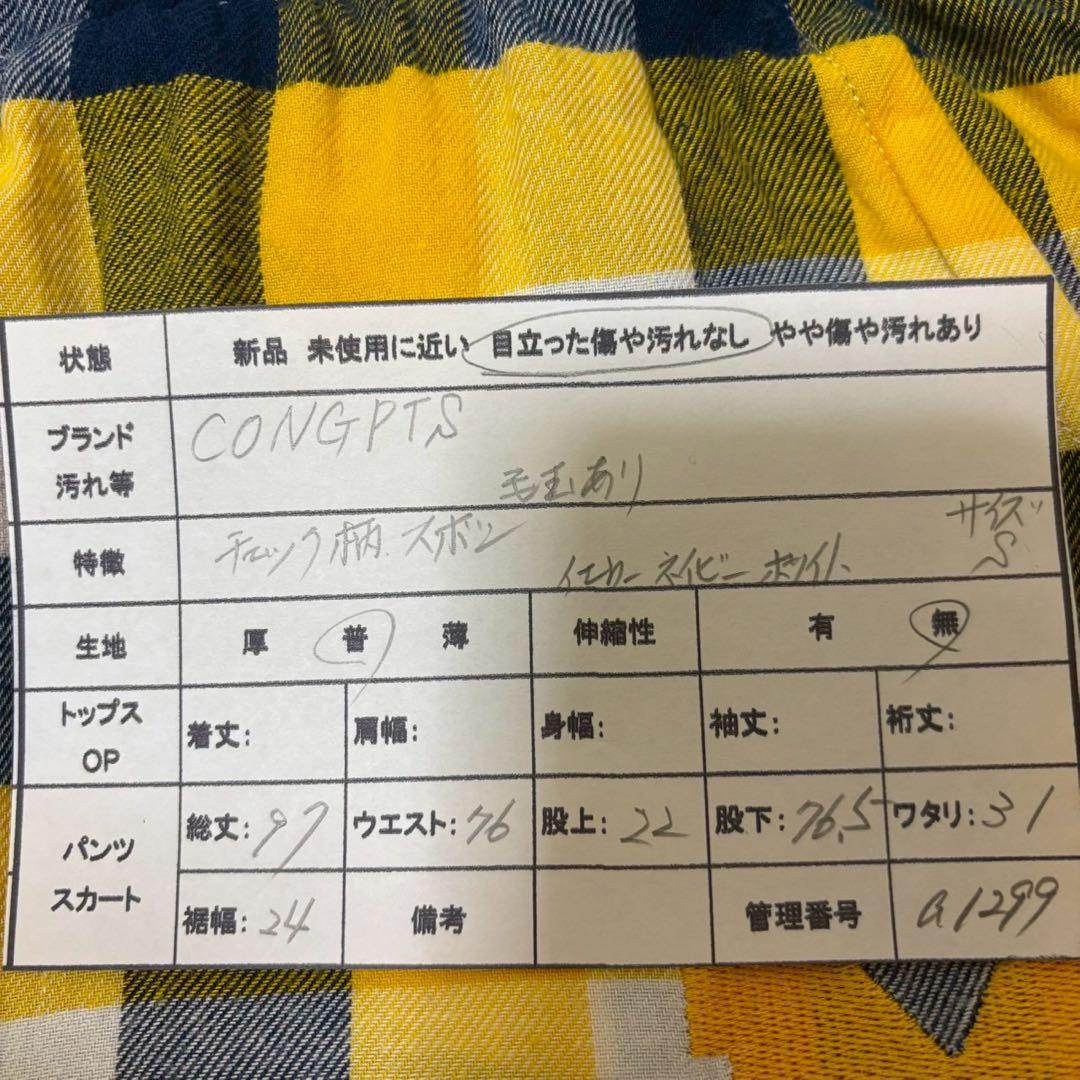 状態 新品 未使用に近い 目立った傷や汚れなし やや傷や汚れあり
ブランド 汚れ等 CONGPTS
毛玉あり
特徴 チェック柄 ズボン サイズ S
イエロー ネイビー ホワイト
生地 厚 普 薄 伸縮性 有 無
トップス OP 着丈: 肩幅: 身幅: 袖丈: 裄丈:
パンツ スカート 総丈:97 ウエスト:76 股上:22 股下:76.5 ワタリ:31
裾幅:24 備考 管理番号 a1299